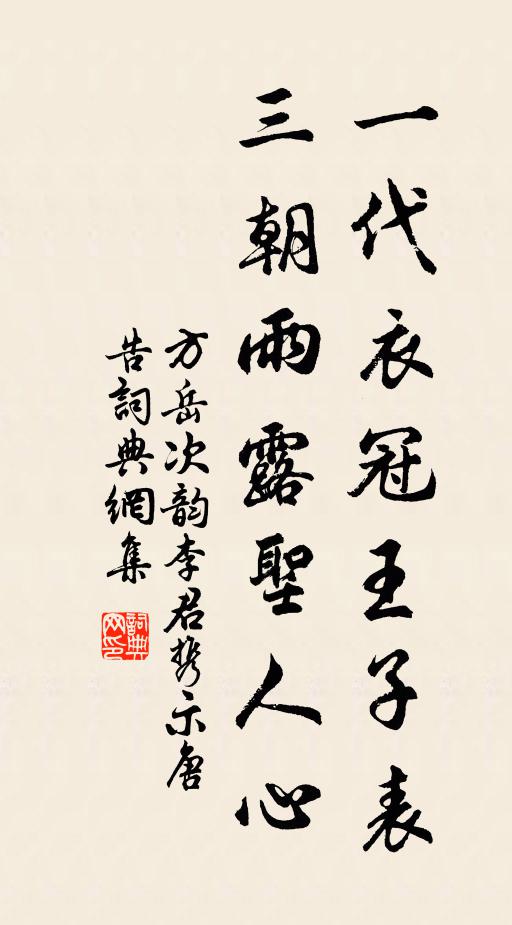 一代衣冠王子表
三朝雨露聖人心
方岳次韵李君携示唐
告詞典網集
詞典网印